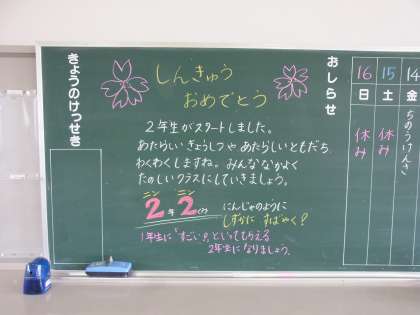 きょうのけっせき
しんきゅう
おめでとう
2年生がスタートしました。
あたらしいきょうしつやあたらしいともだち
わくわくしますね。みんななかよく
たのしいクラスにしていきましょう。
ニン ニン
2年2くみ
にんじゃのように
しずかに すばやく?
1年生に「すごい?」といってもらえる
2年生になりましょう。
おしらせ
16 15 14
日 土 金
休み 休み ちのうけんさ